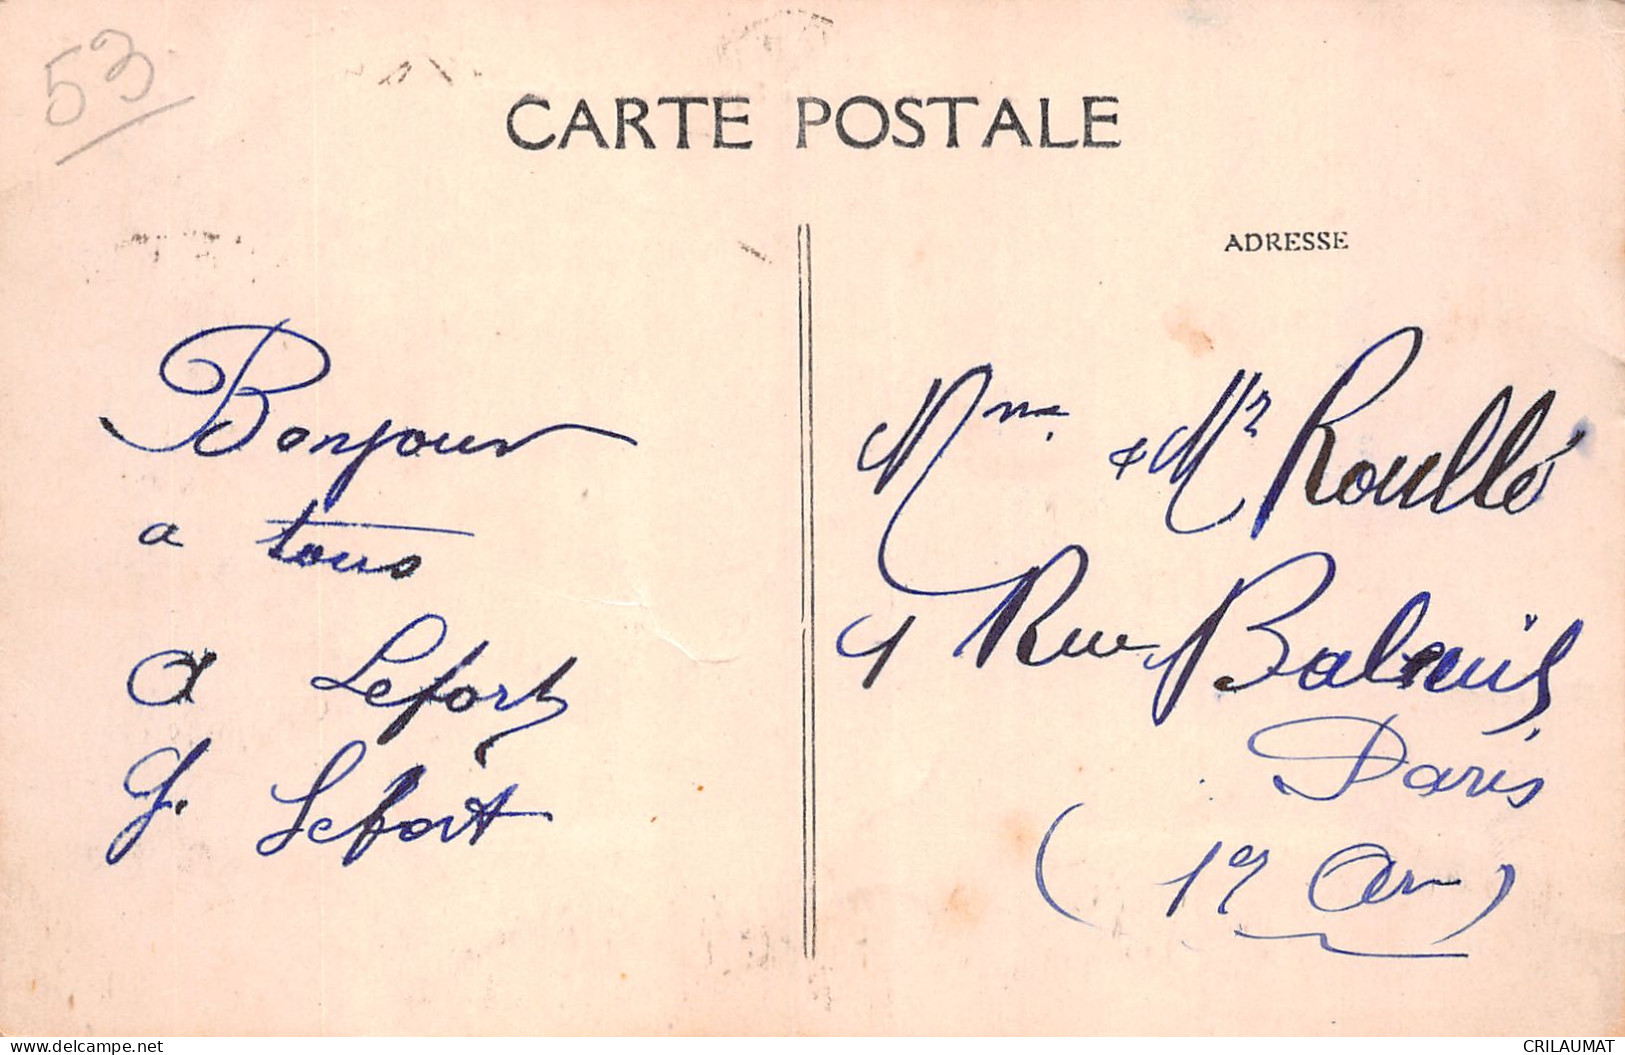 53
CARTE POSTALE
ADRESSE
Bonjour
a tous
A Lefort
G. Lefort
Mme & Mr Roullé
Rue
Paris
(1er Arr)
www.delcampe.net
CRILAUMAT